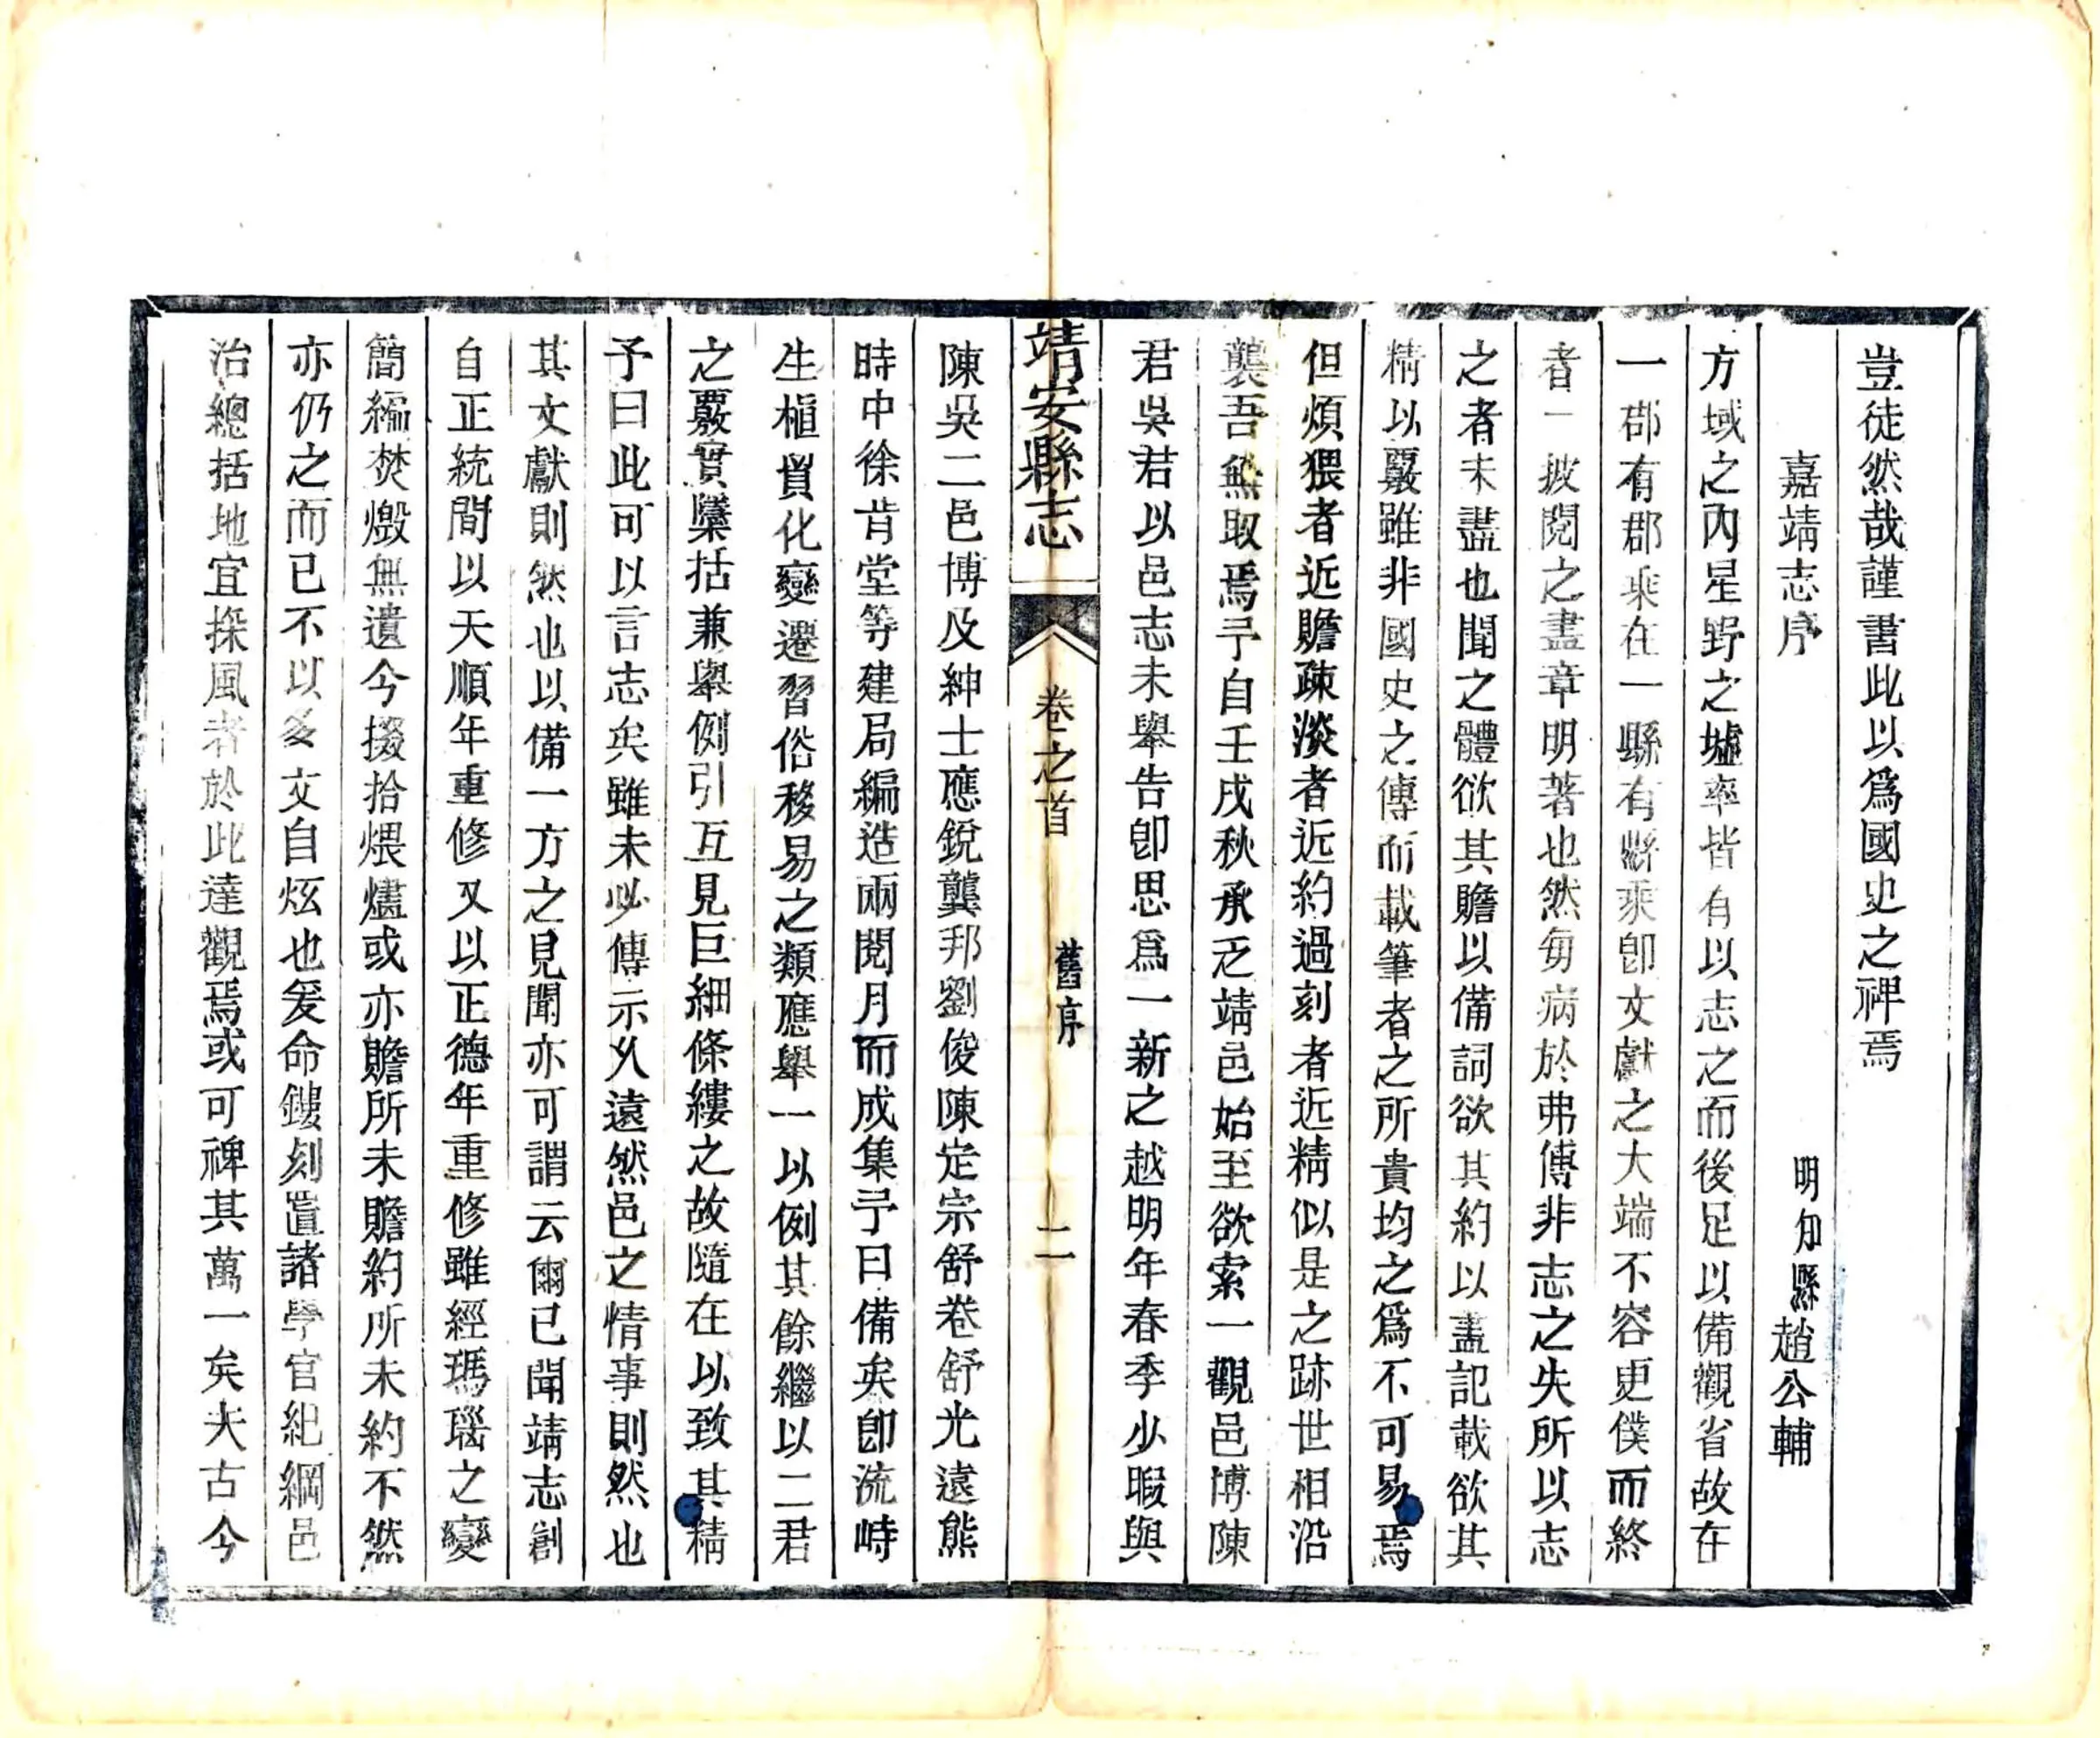 豈徒然哉謹書此以爲國史之裨焉
嘉靖志序
明知縣趙公輔
方域之內星野之墟率皆有以志之而後足以備觀省故在
一郡有郡乘在一縣有縣乘卽文獻之大端不容更僕而終
者一披閱之盡章明著也然每病於弗傳非志之失所以志
之者未盡也聞之體欲其贍以備詞欲其約以盡記載欲其
精以覈雖非國史之傳而載筆者之所貴均之爲不可易焉
但煩猥者近贍疎淡者近約過刻者近精似是之跡世相沿
襲吾無取焉予自壬戌秋承乏靖邑始至欲索一觀邑博陳
君吳君以邑志未舉告卽思爲一新之越明年春季少暇與
靖安縣志
卷之首
舊序
二
陳吳二邑博及紳士應銳龔邦劉俊陳定宗舒卷舒光遠熊
時中徐肯堂等建局編造兩閱月而成集予曰備矣卽流峙
生植貿化變遷習俗移易之類應舉一以例其餘繼以二君
之覈實檃括兼舉例引互見巨細條縷之故隨在以致其精
予曰此可以言志矣雖未必傳示久遠然邑之情事則然也
其文獻則然也以備一方之見聞亦可謂云爾已聞靖志創
自正統間以天順年重修又以正德年重修雖經瑪瑙之變
簡編焚燬無遺今掇拾煨燼或亦贍所未贍約所未約不然
亦仍之而已不以多文自炫也爰命鏤刻置諸學官紀綱邑
治總括地宜採風者於此達觀焉或可裨其萬一矣夫古今